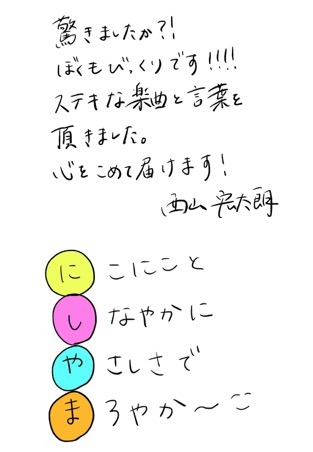 驚きましたか?!
ぼくもびっくりです!!!!
ステキな楽曲と言葉を
頂きました。
心をこめて届けます!
西山宏太朗
にこにこと
しなやかに
やさしさで
まろやか〜